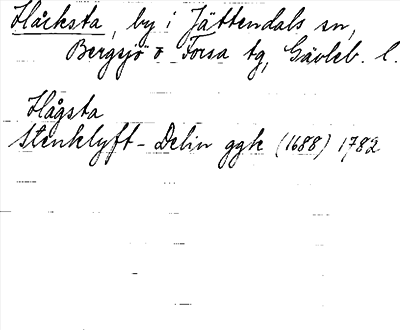 Hårksta, by i Jättendals sn,
Bergsjö o Forsa tg, Gävleb. l.
Hågsta
Stenklyft - Delin ggk (1688) 1782